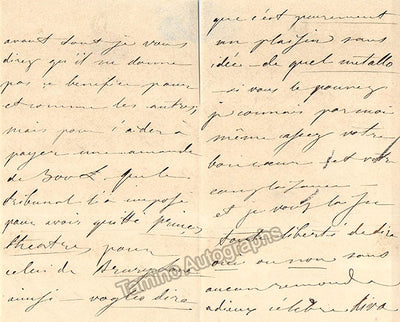 avant tout je vous
direz qu'il ne donne
pas ce benefice pour
et comme les autres,
mais pour l'aider à
payer une amende
de 300 L. que le
tribunal l'a imposé
pour avoir quitté
theatre pour
celui de
ainsi - voglio dire
que c'est purement
un plaisir sans
idée de quel metallo
- si vous le pouvez
je connais par moi
même assez votre
bon cœur et votre
complaisance
et je vous laisse
toute liberté de dire
oui ou non sans
aucun remord
adieux célèbre diva
Tamino Autographs